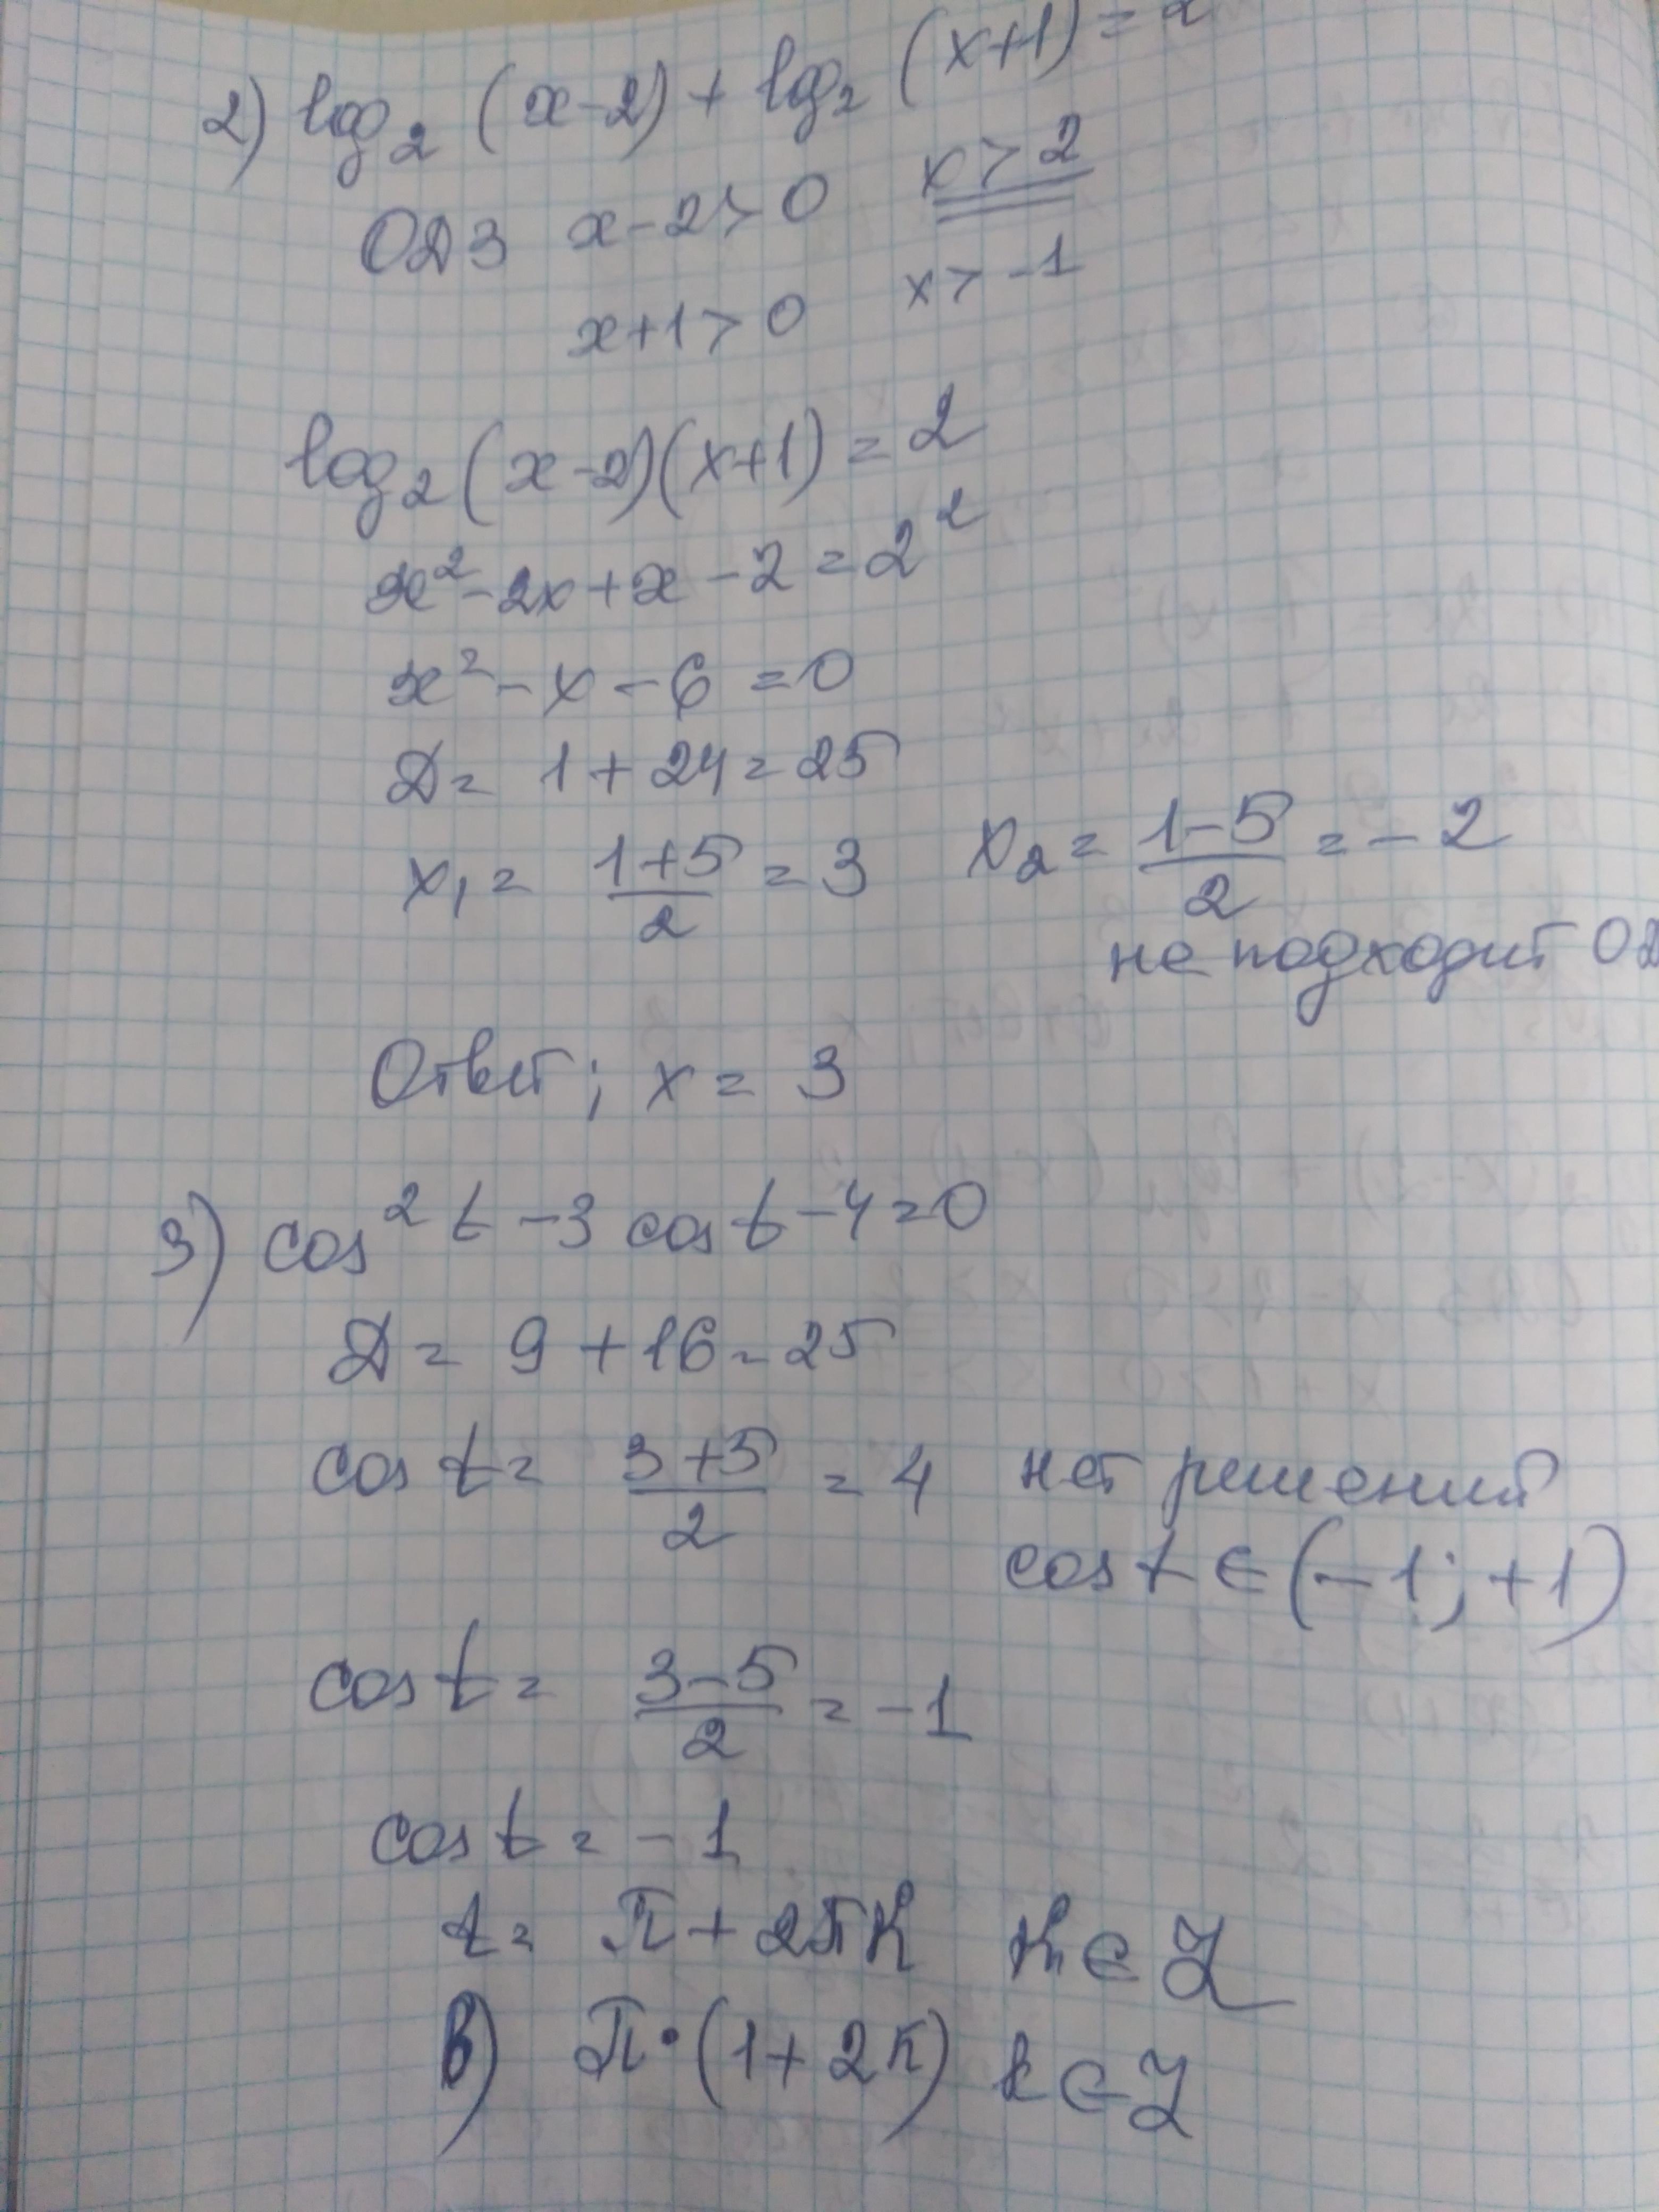 2) log₂ (x-2) + log₂ (x+1) = 2
ОДЗ x-2>0 x>2
x+1>0 x>-1
log₂(x-2)(x+1) = 2
x²-2x+x-2=2²
x²-x-6=0
Д= 1+24=25
x₁= (1+5)/2 =3 x₂= (1-5)/2 =-2
не подходит ОД
Ответ; x = 3
3) cos²t-3 cost-4=0
Д= 9+16=25
cost= (3+5)/2 =4 нет решений
cost∈(-1;+1)
cost= (3-5)/2 =-1
cost=-1
t= π+2πk k∈Z
В) π·(1+2k) k∈Z